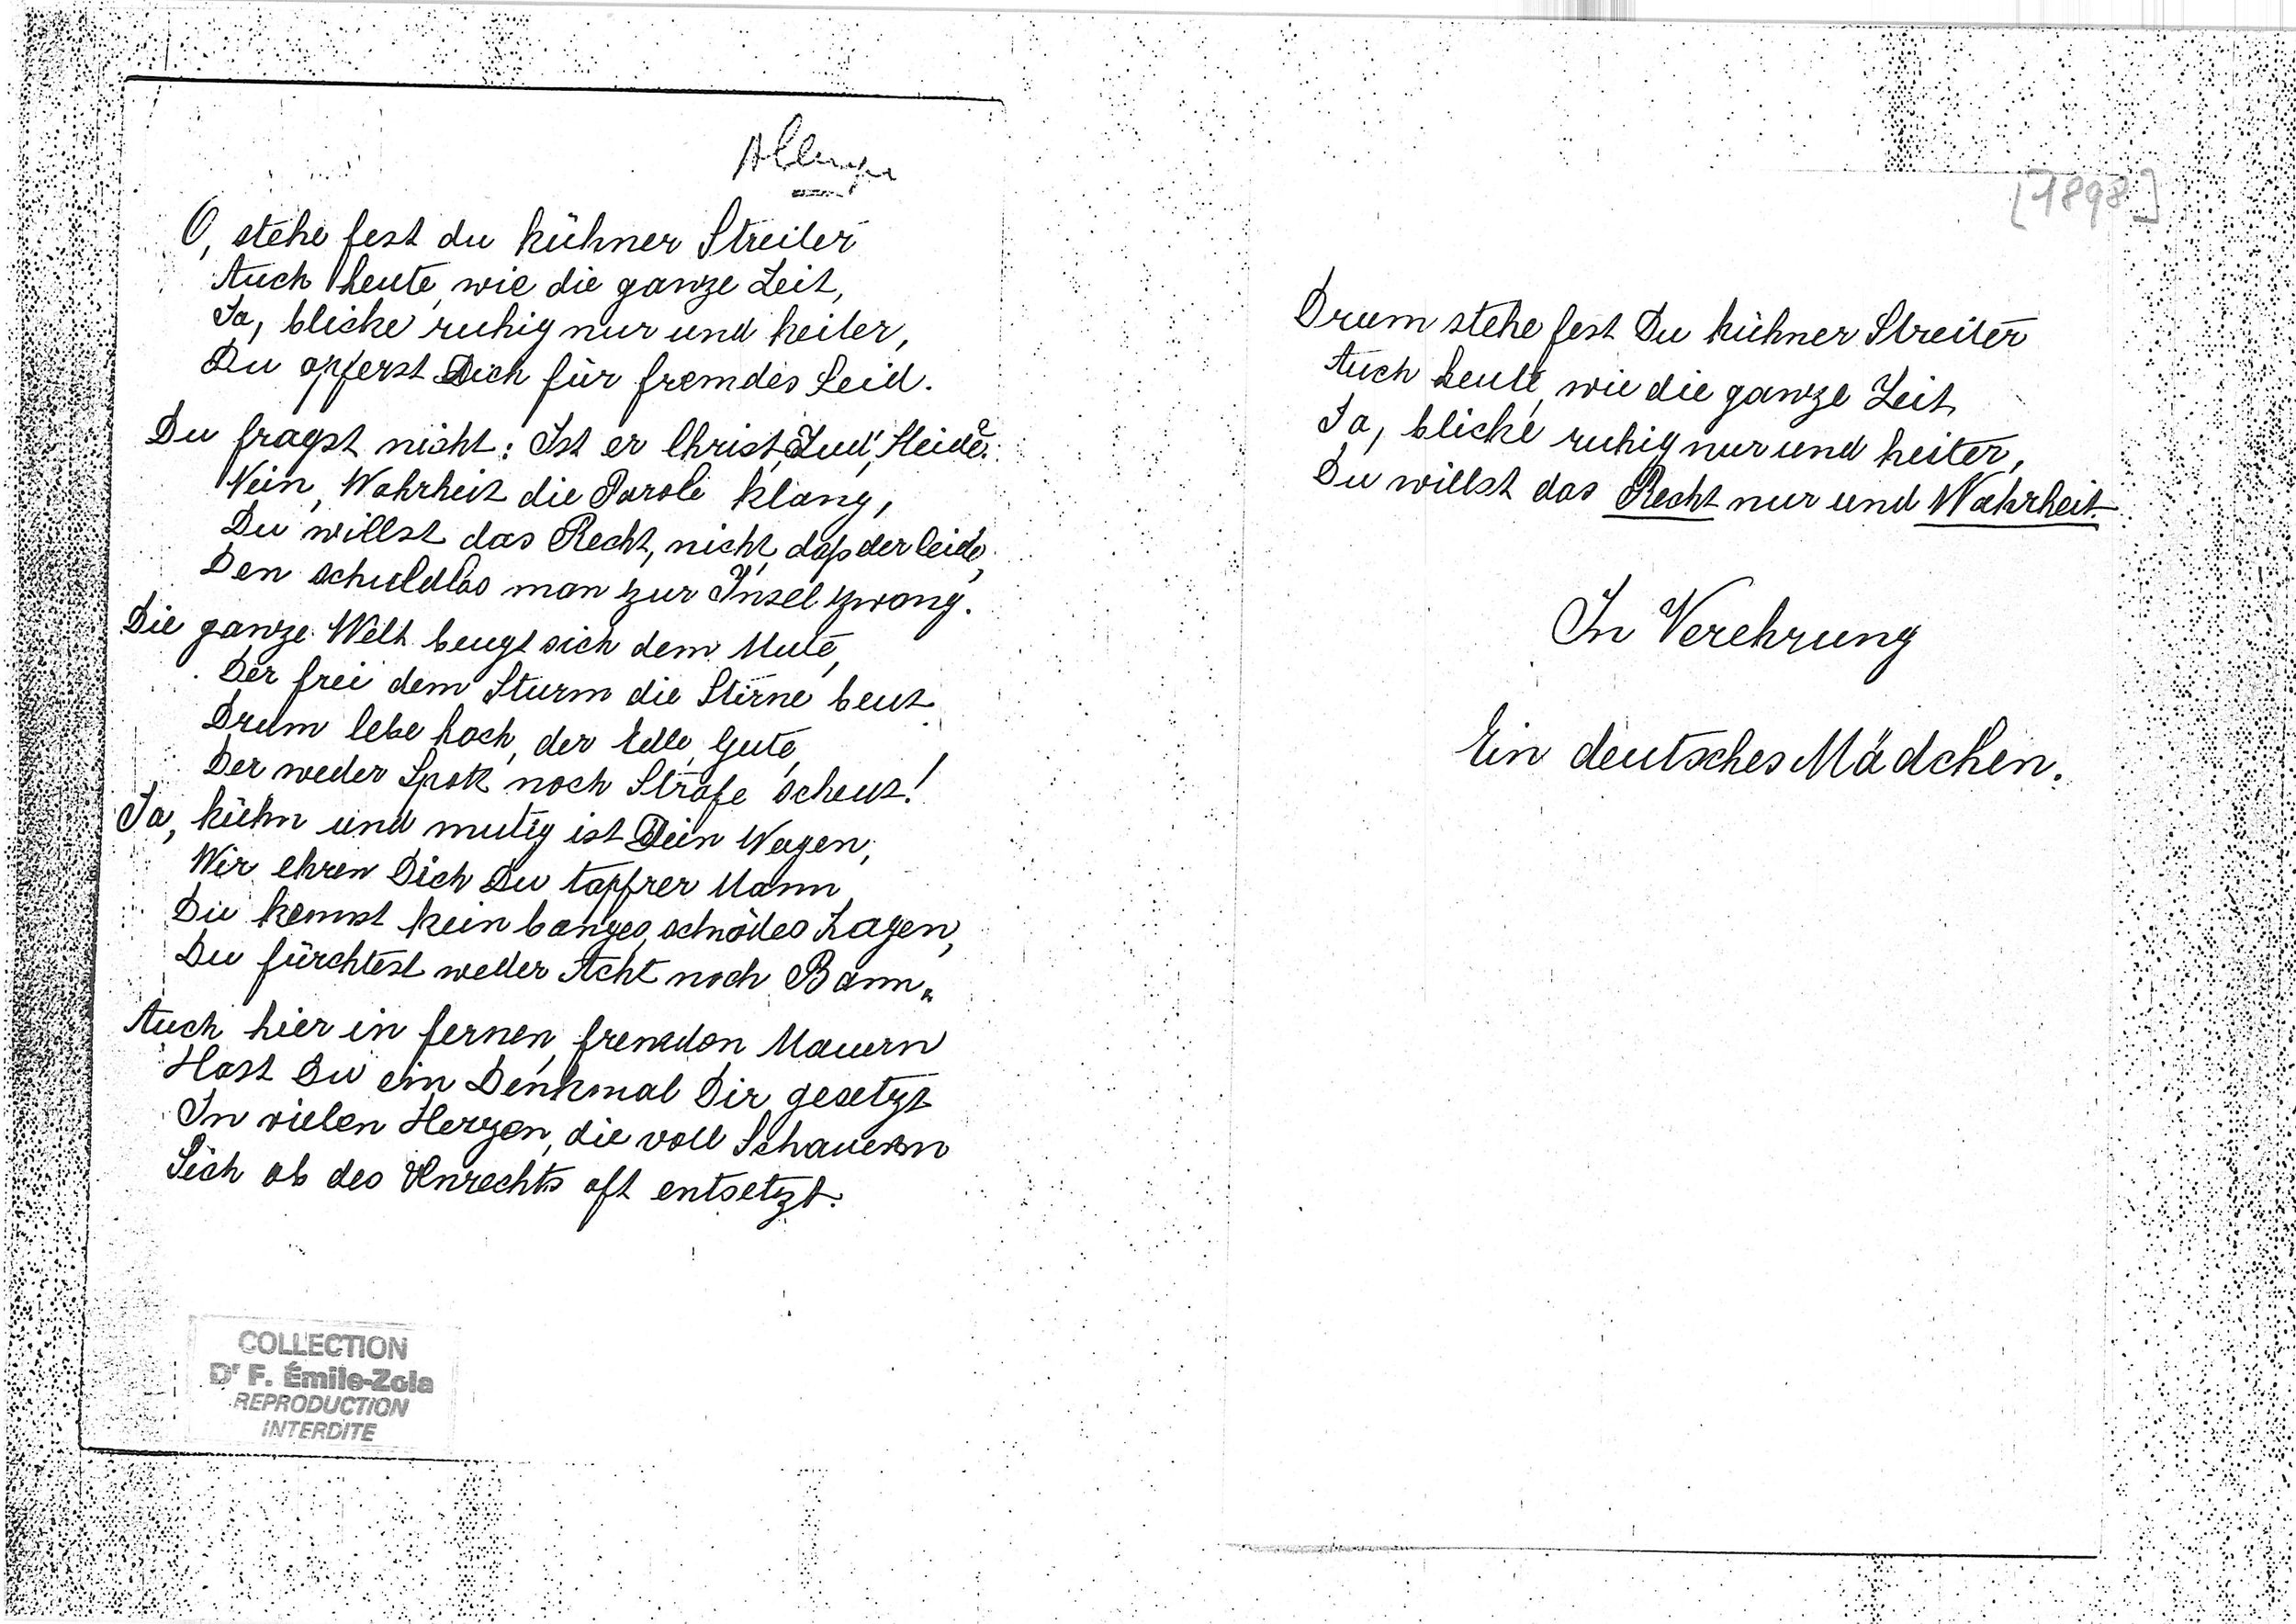 O, stehe fest du kühner Streiter
Auch heute, wie die ganze Zeit,
Ja, blicke ruhig nur und heiter,
Du opferst Dich für fremdes Leid.
Du fragst nicht: Ist er Christ, Jud', Heide?
Nein, Wahrheit die Parole klang,
Du willst das Recht, nicht, daß der leide,
Den schuldlos man zur Insel zwang.
Die ganze Welt beugt sich dem Mute,
Der frei dem Sturm die Stirne beut.
Drum lebe hoch, der Edle, Gute,
Der weder Spott noch Strafe scheut!
Ja, kühn und mutig ist Dein Wagen,
Wir ehren Dich Du tapfrer Mann
Du kennst kein banges, schnödes Zagen,
Du fürchtest weder Acht noch Bann.
Auch hier in fernen, fremden Mauern
Hast Du ein Denkmal Dir gesetzt
In vielen Herzen, die voll Schauern
Sich ob des Unrechts oft entsetzt.
COLLECTION
Dr F. Émile-Zola
REPRODUCTION
INTERDITE
[1898]
Drum stehe fest Du kühner Streiter
Auch heute, wie die ganze Zeit,
Ja, blicke ruhig nur und heiter,
Du willst das Recht nur und Wahrheit.
In Verehrung
Ein deutsches Mädchen.